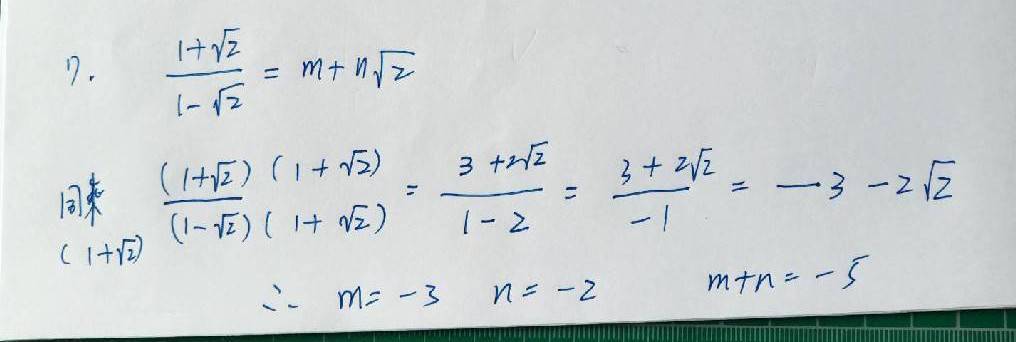 7. (1+√2)/(1-√2) = m+n√2
同乘 (1+√2) ((1+√2)(1+√2))/((1-√2)(1+√2)) = (3+2√2)/(1-2) = (3+2√2)/(-1) = -3-2√2
∴ m=-3 n=-2 m+n=-5